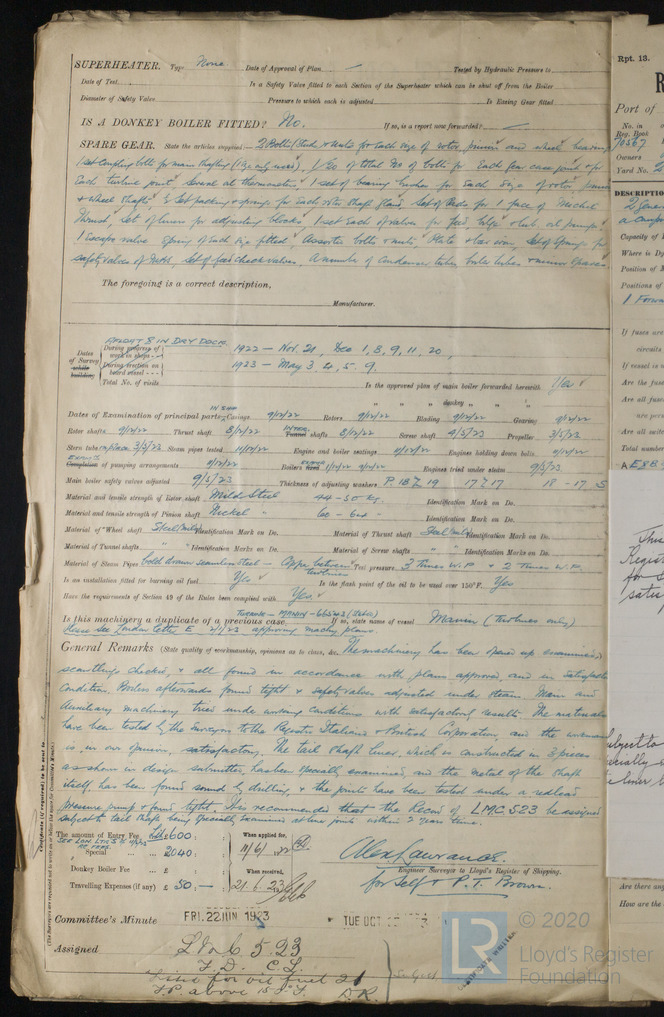 SUPERHEATER. Type None. Date of Approval of Plan Tested by Hydraulic Pressure to
Date of Test Is a Safety Valve fitted to each Section of the Superheater which can be shut off from the Boiler
Diameter of Safety Valve Pressure to which each is adjusted Is Easing Gear fitted
IS A DONKEY BOILER FITTED? No. If so, is a report now forwarded?
SPARE GEAR. State the articles supplied:— 2 Bolts, Studs & Nuts for each size of rotor, pinion and wheel bearing
1 set coupling bolts for main shafting (1 size only used), of total No of bolts for each gear case joint & for
each turbine joint, several oil thermometers, 1 set of bearing bushes for each size of rotor, pinion
& wheel shaft, Set packing & springs for each rotor shaft gland, Set of Pads for 1 face of Michell
Thrust, Set of liners for adjusting blocks, 1 set each of valves for feed, bilge & lub. oil pumps,
1 Escape valve spring of each size fitted, Assorted bolts & nuts, Plate & bar iron, Set of springs for
safety valves of Set of feed check valves, A number of condenser tubes, boiler tubes & minor spares.
The foregoing is a correct description,
Manufacturer.
AFLOAT & IN DRY DOCK
Dates of Survey while building
During progress of work in shops -- 1922 — Nov. 21, Dec 1, 8, 9, 11, 20,
During erection on board vessel --- 1923 — May 3. 4, 5. 9.
Total No. of visits Is the approved plan of main boiler forwarded herewith Yes
" " " donkey " " "
Dates of Examination of principal parts—Casings 9/12/22 Rotors 9/12/22 Blading 9/12/22 Gearing 9/12/22
Rotor shafts 9/12/22 Thrust shaft 8/12/22 INTER. Tunnel shafts 8/12/22 Screw shaft 4/5/23 Propeller 3/5/23
Stern tube in place 3/5/23 Steam pipes tested 11/12/22 Engine and boiler seatings 11/12/22 Engines holding down bolts 9/12/22
Completion of pumping arrangements 9/12/22 Boilers fixed 9/12/22 Engines tried under steam 9/5/23
Main boiler safety valves adjusted 9/5/23 Thickness of adjusting washers P. 18 19 17 17 18 - 17 S
Material and tensile strength of Rotor shaft Mild Steel 44 - 50 kg. Identification Mark on Do.
Material and tensile strength of Pinion shaft Nickel " 60 - 64 " Identification Mark on Do.
Material of Wheel shaft Steel (mild) Identification Mark on Do. Material of Thrust shaft Steel (mild) Identification Mark on Do.
Material of Tunnel shafts " " Identification Marks on Do. Material of Screw shafts " " Identification Marks on Do.
Material of Steam Pipes Cold drawn seamless steel — Copper between turbines Test pressure 3 Times W.P & 2 Times W.P.
Is an installation fitted for burning oil fuel Yes Is the flash point of the oil to be used over 150°F. Yes
Have the requirements of Section 49 of the Rules been complied with Yes.
Is this machinery a duplicate of a previous case If so, state name of vessel Manin (Turbines only)
Please see London letter E 2/1/23 approving machy plans.
General Remarks (State quality of workmanship, opinions as to class, &c. The machinery has been opened up examined,
scantlings checked, & all found in accordance with plans approved, and in satisfactory
condition. Boilers afterwards found tight & safety valves adjusted under steam. Main and
Auxiliary machinery tried under working conditions with satisfactory result. The materials
have been tested by the Surveyors to the Registro Italiano & British Corporation, and the workmanship
is, in our opinion, satisfactory. The tail shaft liner, which is constructed in 3 pieces
as shown in design submitted, has been specially examined, and the metal of the shaft
itself has been found sound by drilling, & the joints have been tested under a redlead
pressure pump & found tight. It is recommended that the Record of LMC. 5.23 be assigned
subject to tail shaft being specially examined at liner joints within 2 years time.
Certificate (if required) to be sent to
The amount of Entry Fee 600: When applied for,
Special ... 2040: 11/6/23
Donkey Boiler Fee ... £ When received,
Travelling Expenses (if any) £ 50.— 21.6.23
Alex Lawrance.
Engineer Surveyor to Lloyd's Register of Shipping.
for Self & P. T. Brown.
Committee's Minute FRI. 22 JUN 1923 TUE OCT
Assigned LMC 5.23
F.D. C.L.
Fitted for oil fuel
F.P. above 150°F.
Rpt. 13.
Port of
No. in
Reg. Book
70567
Owners
Yard No.
DESCRIPTION
Capacity of
Where is Dy
Position of M
Positions of
If fuses are
circuits
If vessel is
Are the fus
Are all fuses
are per
Are all swit
Total number
This
Regist
for s
satis
subject to
Are there any
How are the
© 2020
LR
Lloyd's Register
Foundation